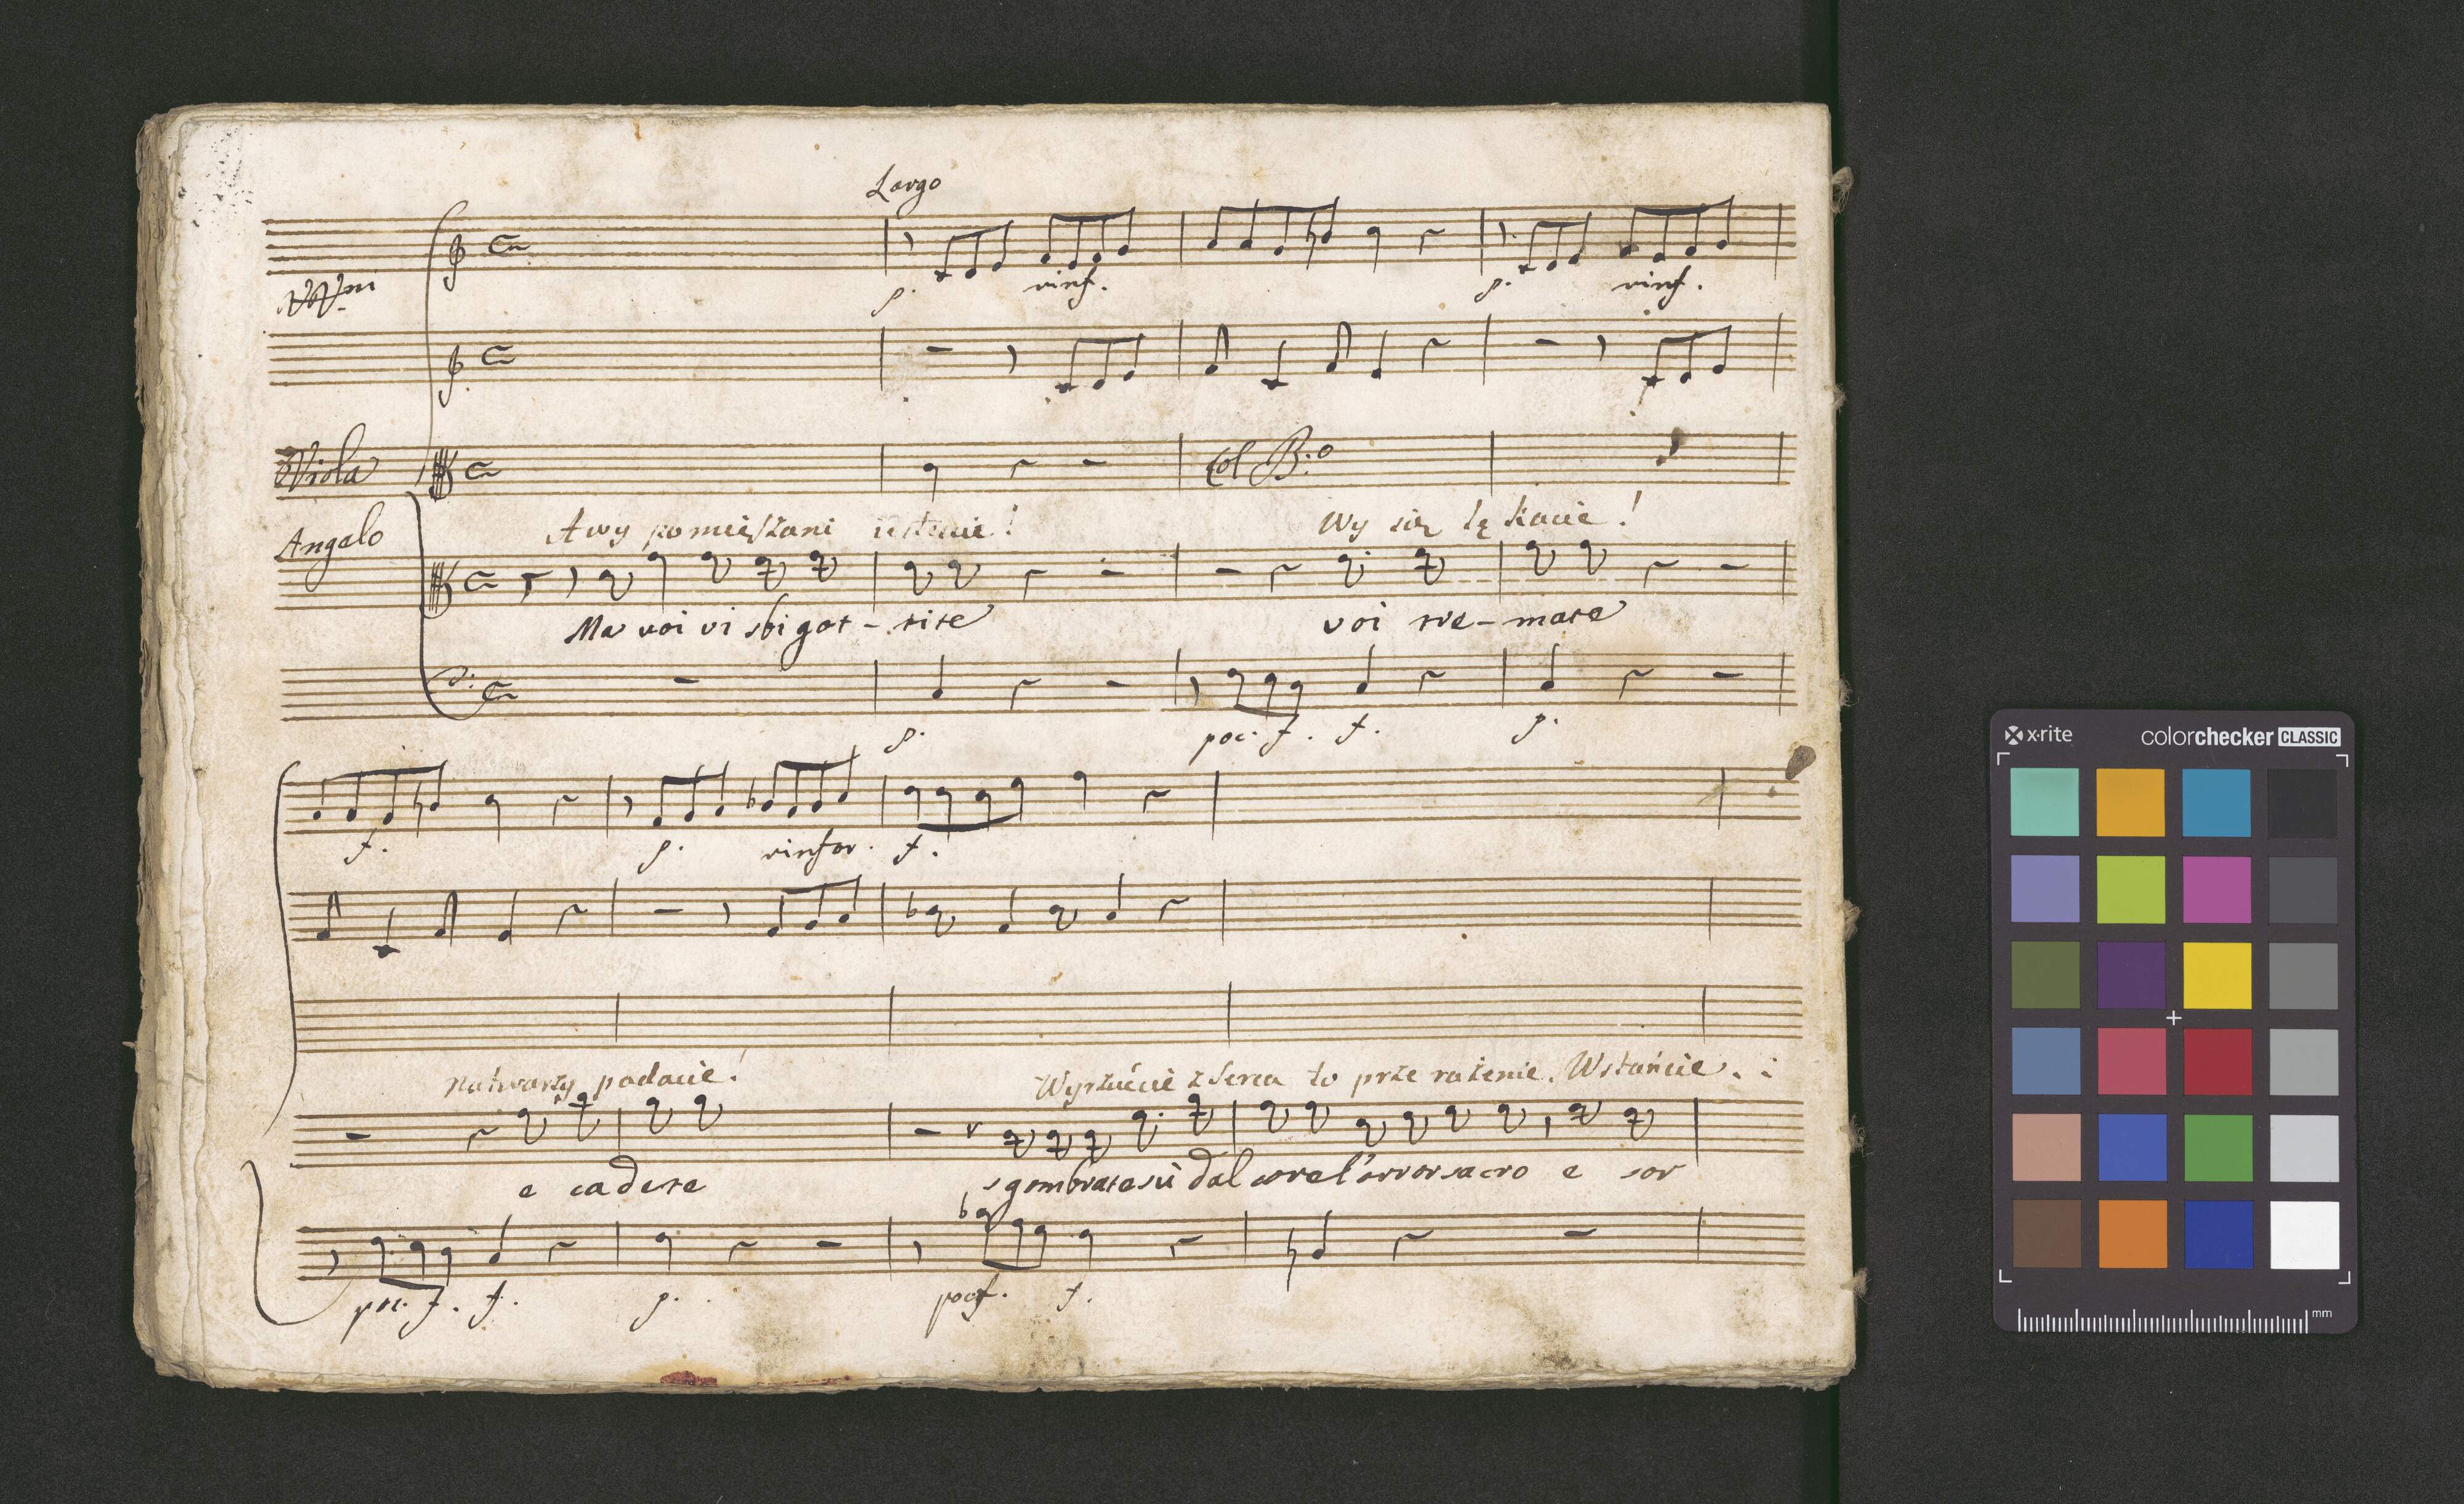 Largo
VVni
p. rinf. p. rinf.
Viola
Col B:o
A wy pomięszani iesteście!
Wy się lękacie!
Angelo
Ma voi vi sbigot-tite
voi tre-mate
p. poc. f. f. p.
f. p. rinfor. f.
Na twarzy padacie!
Wyrzućcie z serca to prze rażenie. Wstańcie.
e cadete
sgombrate sù dal core l'orror sacro e sor
poc. f. f. p. poc f. f.
x-rite colorchecker CLASSIC
mm